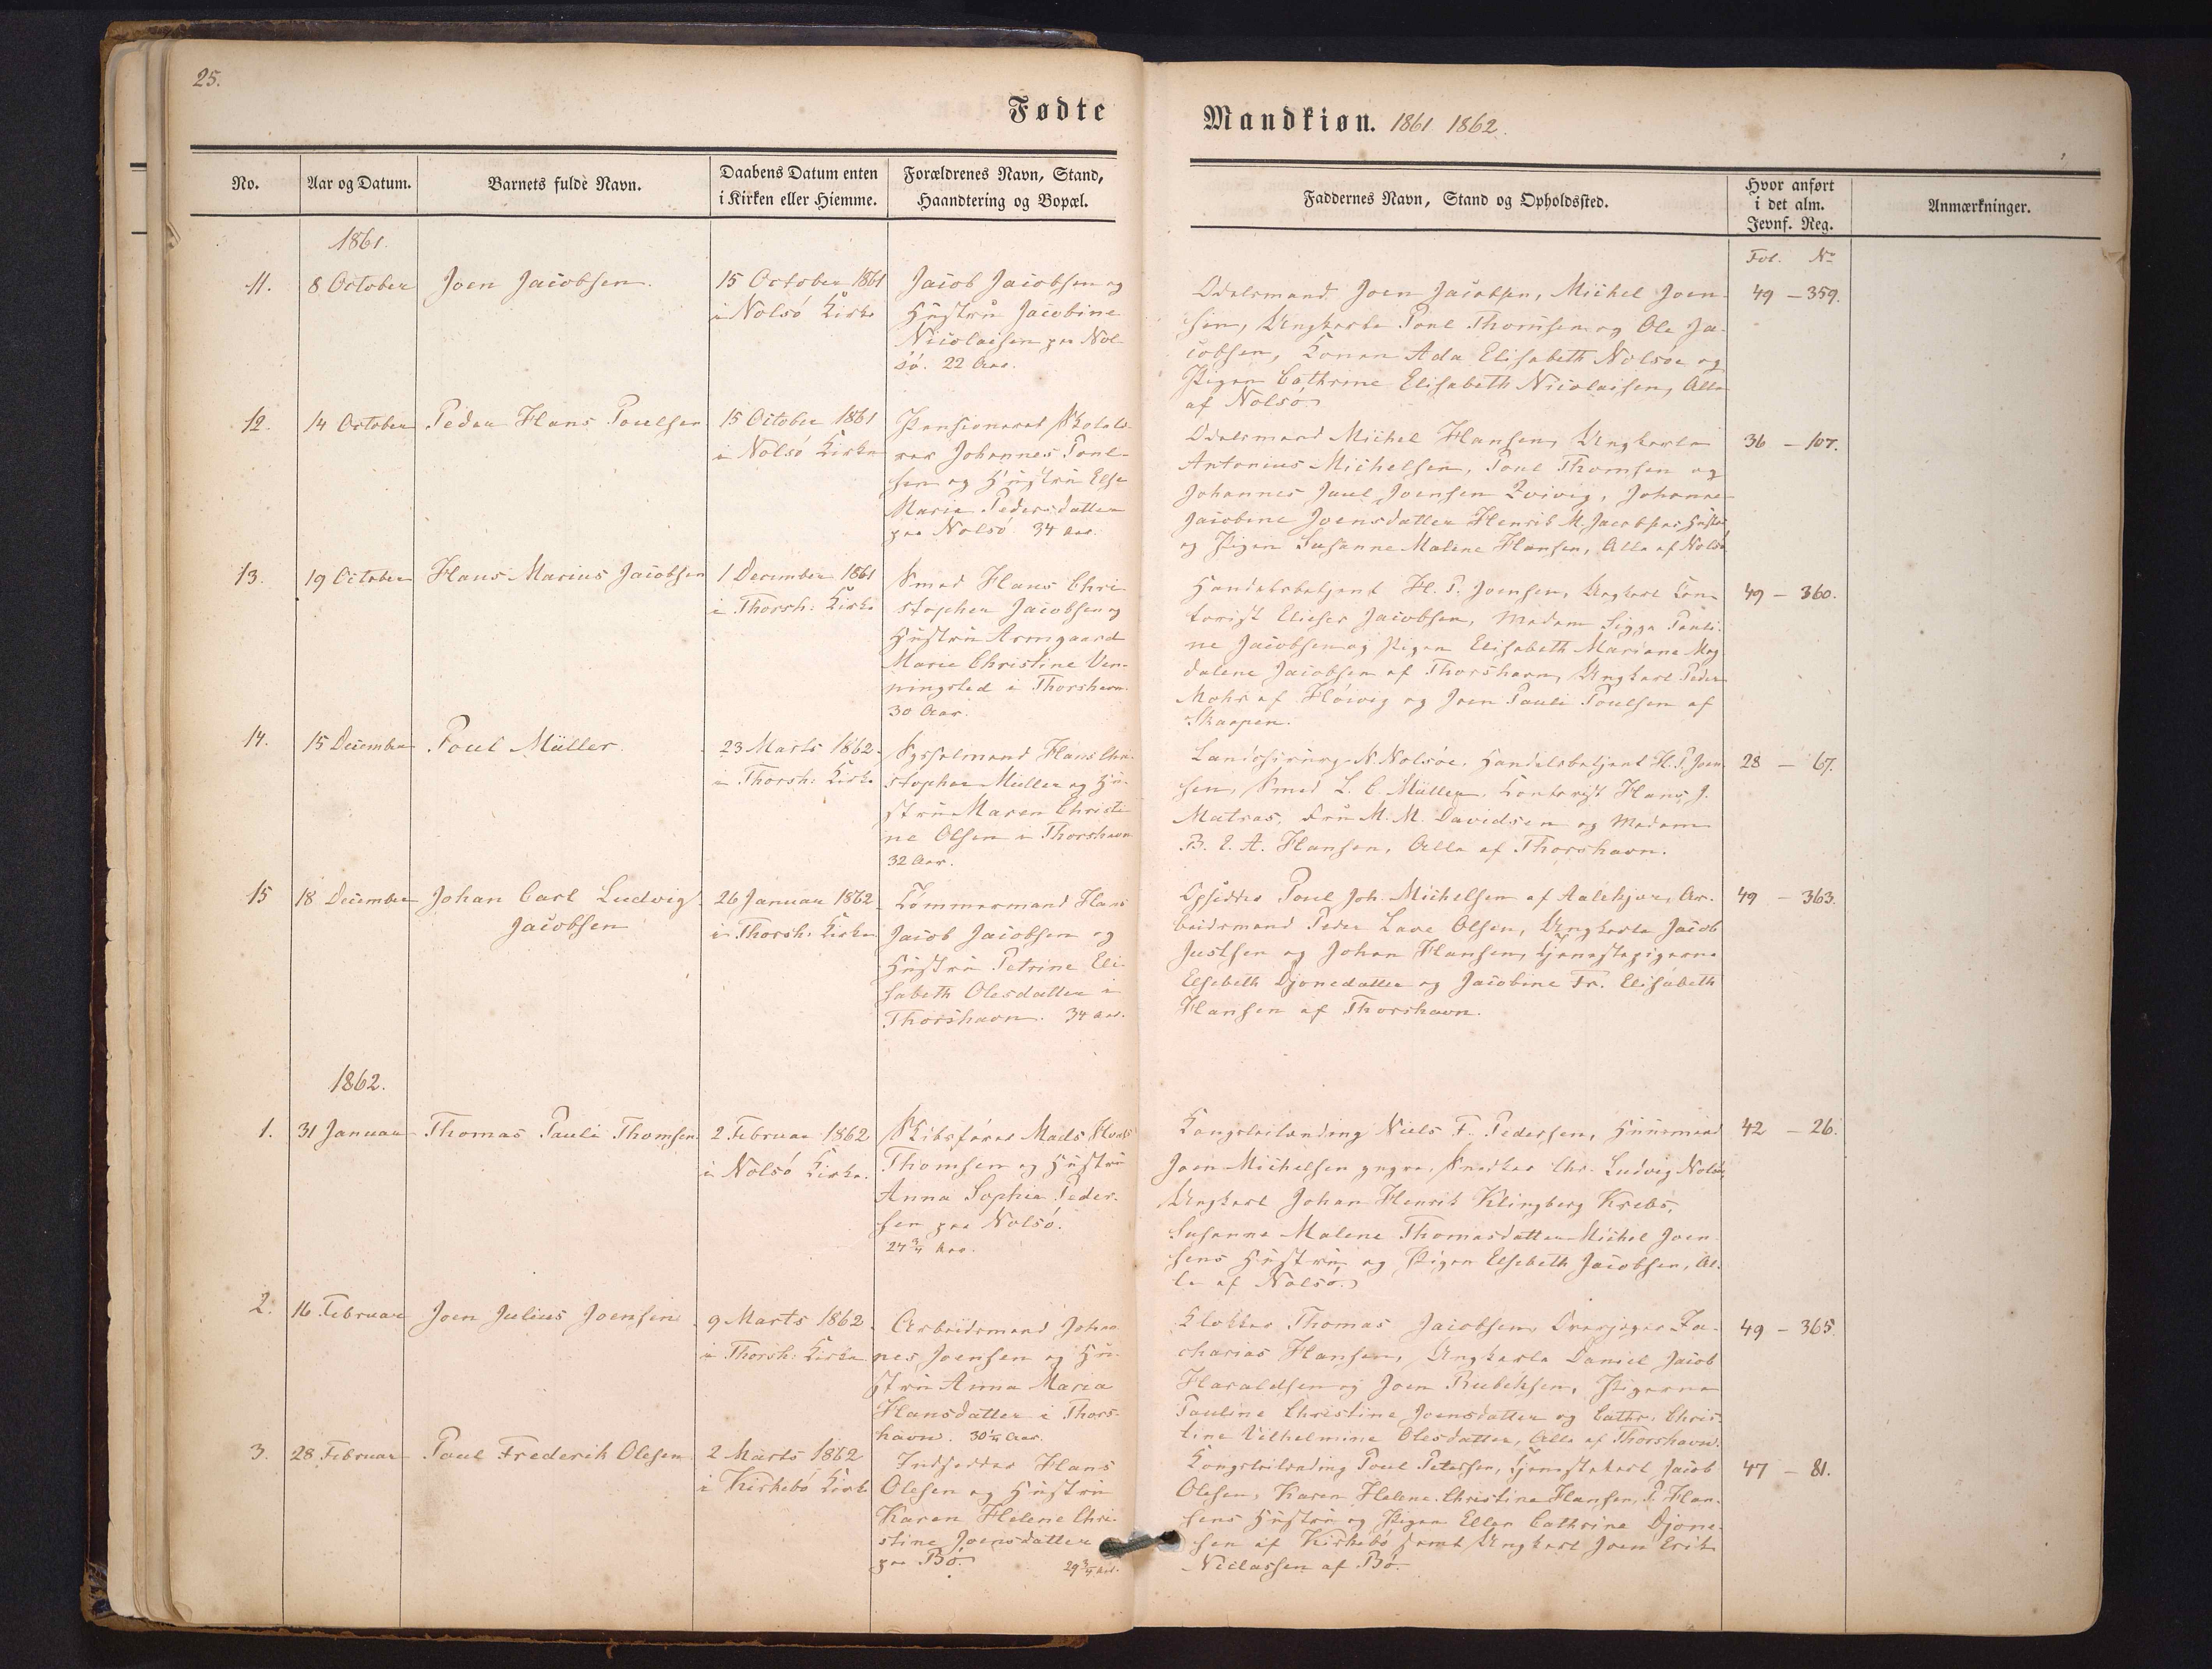 25.
Fødte
Mandkiøn. 1861 1862.
No.
Aar og Datum.
Barnets fulde Navn.
Daabens Datum enten
i Kirken eller Hiemme.
Forældrenes Navn, Stand,
Haandtering og Bopæl.
Faddernes Navn, Stand og Opholdssted.
Hvor anført
i det alm.
Jevnf. Reg.
Anmærkninger.
Fol. No
1861.
11.
8 October
Joen Jacobsen.
15 October 1861
i Nolsö Kirke
Jacob Jacobsen og
Hustru Jacobine
Nicolaisen paa Nol
sö. 22 Aar.
Odelsmænd Joen Jacobsen, Michel Joen-
sen, Ungkarle Poul Thomsen og Ole Ja-
cobsen, Konen Ada Elisabeth Nolsöe og
Pigen Cathrine Elisabeth Nicolaisen, Alle
af Nolsö.
49 – 359.
12.
14 October
Peder Hans Poulsen
15 October 1861
i Nolsö Kirke
Pensioneret
Johannes Poul-
sen og Hustru Else
Marie Pedersdatter
paa Nolsö 34 Aar.
Odelsmand Michel Hansen, Ungkarle
Antonius Michelsen, Poul Thomsen og
Johannes Paul Joensen, Johanne
Jacobine Joensdatter Henrik M. Jacobsens Hustru
og Pigen Susanne Malene Hansen, Alle af Nolsö
36 – 107.
13.
19 October
Hans Marius Jacobsen
1 December 1861
i Thorsh: Kirke
Smed Hans Chri-
stopher Jacobsen og
Hustru Armgaard
Marie Christine Ven-
ningsted i Thorshavn.
30 Aar.
Handelsbetjent H. P. Joensen, Ungkarl Con-
torist Elieser Jacobsen, Madam Sigga Pauli-
ne Jacobsen og Pigen Elisabeth Mariane Mag
dalene Jacobsen af Thorshavn, Ungkarl Peder
Mohr af Höivig og Joen Pauli Poulsen af
Skaapen.
49 – 360.
14.
15 December
Poul Müller.
23 Marts 1862
i Thorsh: Kirke
Sysselmand Hans Chri-
stopher Müller og Hu-
stru Maren Christi-
ne Olsen i Thorshavn
32 Aar.
Landchirurg N. Nolsöe, Handelsbetjent H. P. Joen
sen, Smed L. C. Müller, Contorist Hans J.
Matras, Fru M. M. Davidsen og Madam
B. E. A. Hansen, Alle af Thorshavn.
28 – 67.
15
18 December
Johan Carl Ludvig
Jacobsen
26 Januar 1862
i Thorsh: Kirke
Tömmermand Hans
Jacob Jacobsen og
Hustru Petrine Eli-
sabeth Olesdatter i
Thorshavn. 34 Aar.
Opsidder Poul Joh. Michelsen af Aalekjær, Ar-
beidsmand Peder Lave Olsen, Ungkarle Jacob
Justsen og Johan Hansen, Tjenestepigerne
Elsebeth Djonedatter og Jacobine Fr. Elisabeth
Hansen af Thorshavn.
49 – 363.
1862.
1.
31 Januar
Thomas Pauli Thomsen
2 Februar 1862
i Nolsö Kirke.
Skibsförer Mads
Thomsen og Hustru
Anna Sophie Peder-
sen paa Nolsö.
27 3/4 Aar.
Kongsleilænding Niels F. Pedersen, Huusmand
Joen Michelsen yngre, Snedker Chr. Ludvig Nolsöe,
Ungkarl Johan Henrik Klingberg Krebs,
Susanne Malene Thomasdatter Michel Joen-
sens Hustru, og Pigen Elsebeth Jacobsen, Al-
le af Nolsö.
42 – 26.
2.
16 Februar
Joen Julius Joensen
9 Marts 1862
i Thorsh: Kirke
Arbeidsmand Johan
nes Joensen og Hu-
stru Anna Maria
Hansdatter i Thors-
havn. 30 1/4 Aar.
Klokker Thomas Jacobsen, Za-
charias Hansen, Ungkarle Daniel Jacob
Haraldsen og Joen Rubeksen, Pigerne
Pauline Christine Joensdatter og Cathr. Chris-
tine Vilhelmine Olesdatter, Alle af Thorshavn.
49 – 365.
3.
28 Februar
Poul Frederik Olesen
2 Marts 1862
i Kirkebö Kirke
Indsidder Hans
Olesen og Hustru
Karen Helene Chri-
stine Joensdatter
paa Bö. 29 3/4 Aar.
Kongsleilænding Poul Petersen, Tjenestekarl Jacob
Olesen, Karen Helene Christine Hansen, P. Han-
sens Hustru og Pigen Ellen Cathrine Djone-
sen af Kirkebö samt Ungkarl Joen Erik
Niclassen af Bö.
47 – 81.